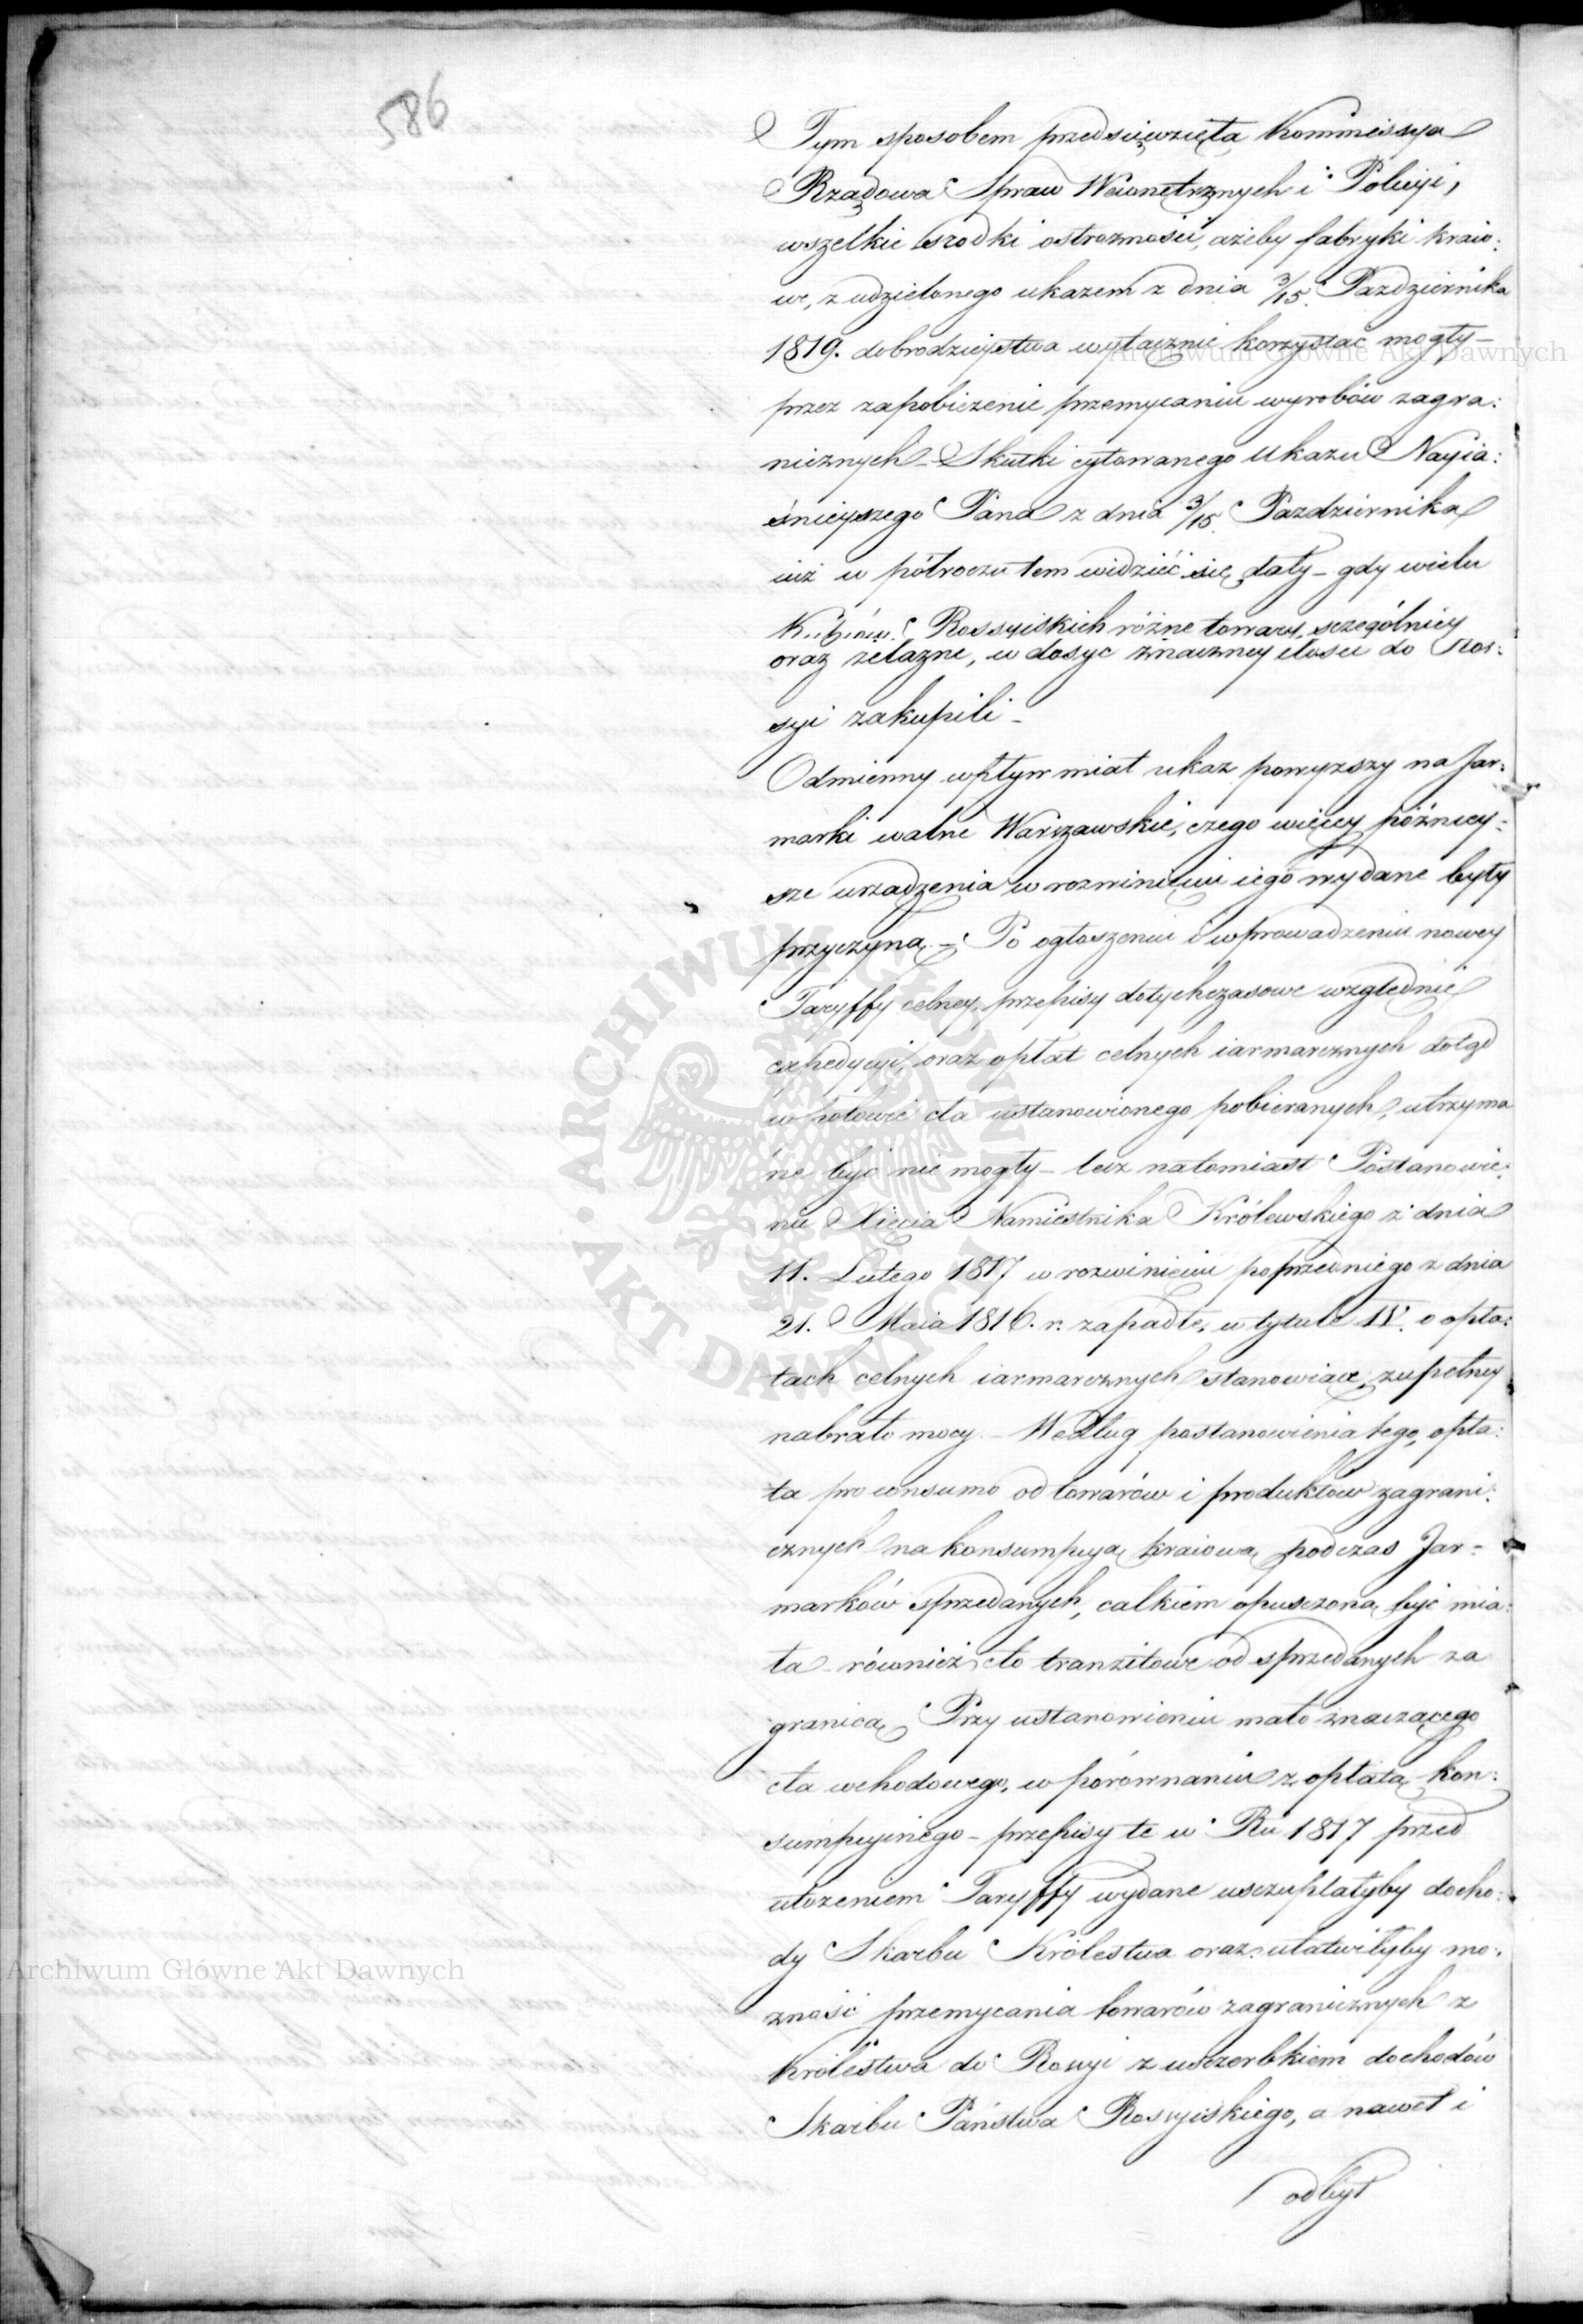 586
Tym sposobem przedsięwzięta Kommissya
Rządowa Spraw Wewnętrznych i Policyi,
wszelkie srodki ostrożności, ażeby fabryki kraio:
we, z udzielonego ukazem z dnia 3/15. Pazdziernika
1819. dobrodzieystwa wyłącznie korzystać mogły –
przez zapobieżenie przemycaniu wyrobów zagra:
nicznych – Skutki cytowanego Ukazu Nayia:
śnieyszego Pana z dnia 3/15. Pazdziernika
iuż w półroczu tem widzieć się dały – gdy wielu
Kupców Rossyiskich różne towary, szczególniey
oraz żelazne, w dosyc znaczney ilości do Ros:
syi zakupili –
Odmienny wpływ miał ukaz powyzszy na Jar:
marki walne Warszawskie, czego więcey późniey:
sze urządzenia w rozwinięciu iego wydane były
przyczyną. – Po ogłoszeniu i wprowadzeniu nowey
Taryffy celney, przepisy dotychczasowe względnie
expedycyi, oraz opłat celnych iarmarcznych dotąd
w połowie cła ustanowionego pobieranych, utrzyma
ne być nie mogły – lecz natomiast Postanowie:
nie Xięcia Namiestnika Królewskiego z dnia
11. Lutego 1817 w rozwinięciu poprzedniego z dnia
21. Maia 1816. r. zapadłe, w tytule IV. o opła:
tach celnych iarmarcznych stanowiące, zupełney
nabrało mocy. – Według postanowienia tego, opła:
ta pro consumo od towarów i produktów zagrani:
cznych na konsumpcyą kraiową podczas Jar:
marków sprzedanych, całkiem opuszczoną być mia:
ła – również cło tranzitowe od sprzedanych za
granicą. Przy ustanowieniu mało znaczącego
cła wchodowego, w porównaniu z opłatą kon:
sumpcyinego – przepisy te w Ru 1817 przed
ułożeniem Taryffy wydane uszczuplałyby docho:
dy Skarbu Królestwa oraz ułatwiłyby mo:
zność przemycania towarów zagranicznych z
Królestwa do Rossyi z uszczerbkiem dochodów
Skarbu Państwa Rossyiskiego, a nawet i
odbyt
Archiwum Główne Akt Dawnych
Archiwum Główne Akt Dawnych
ARCHIWUM GŁÓWNE AKT DAWNYCH